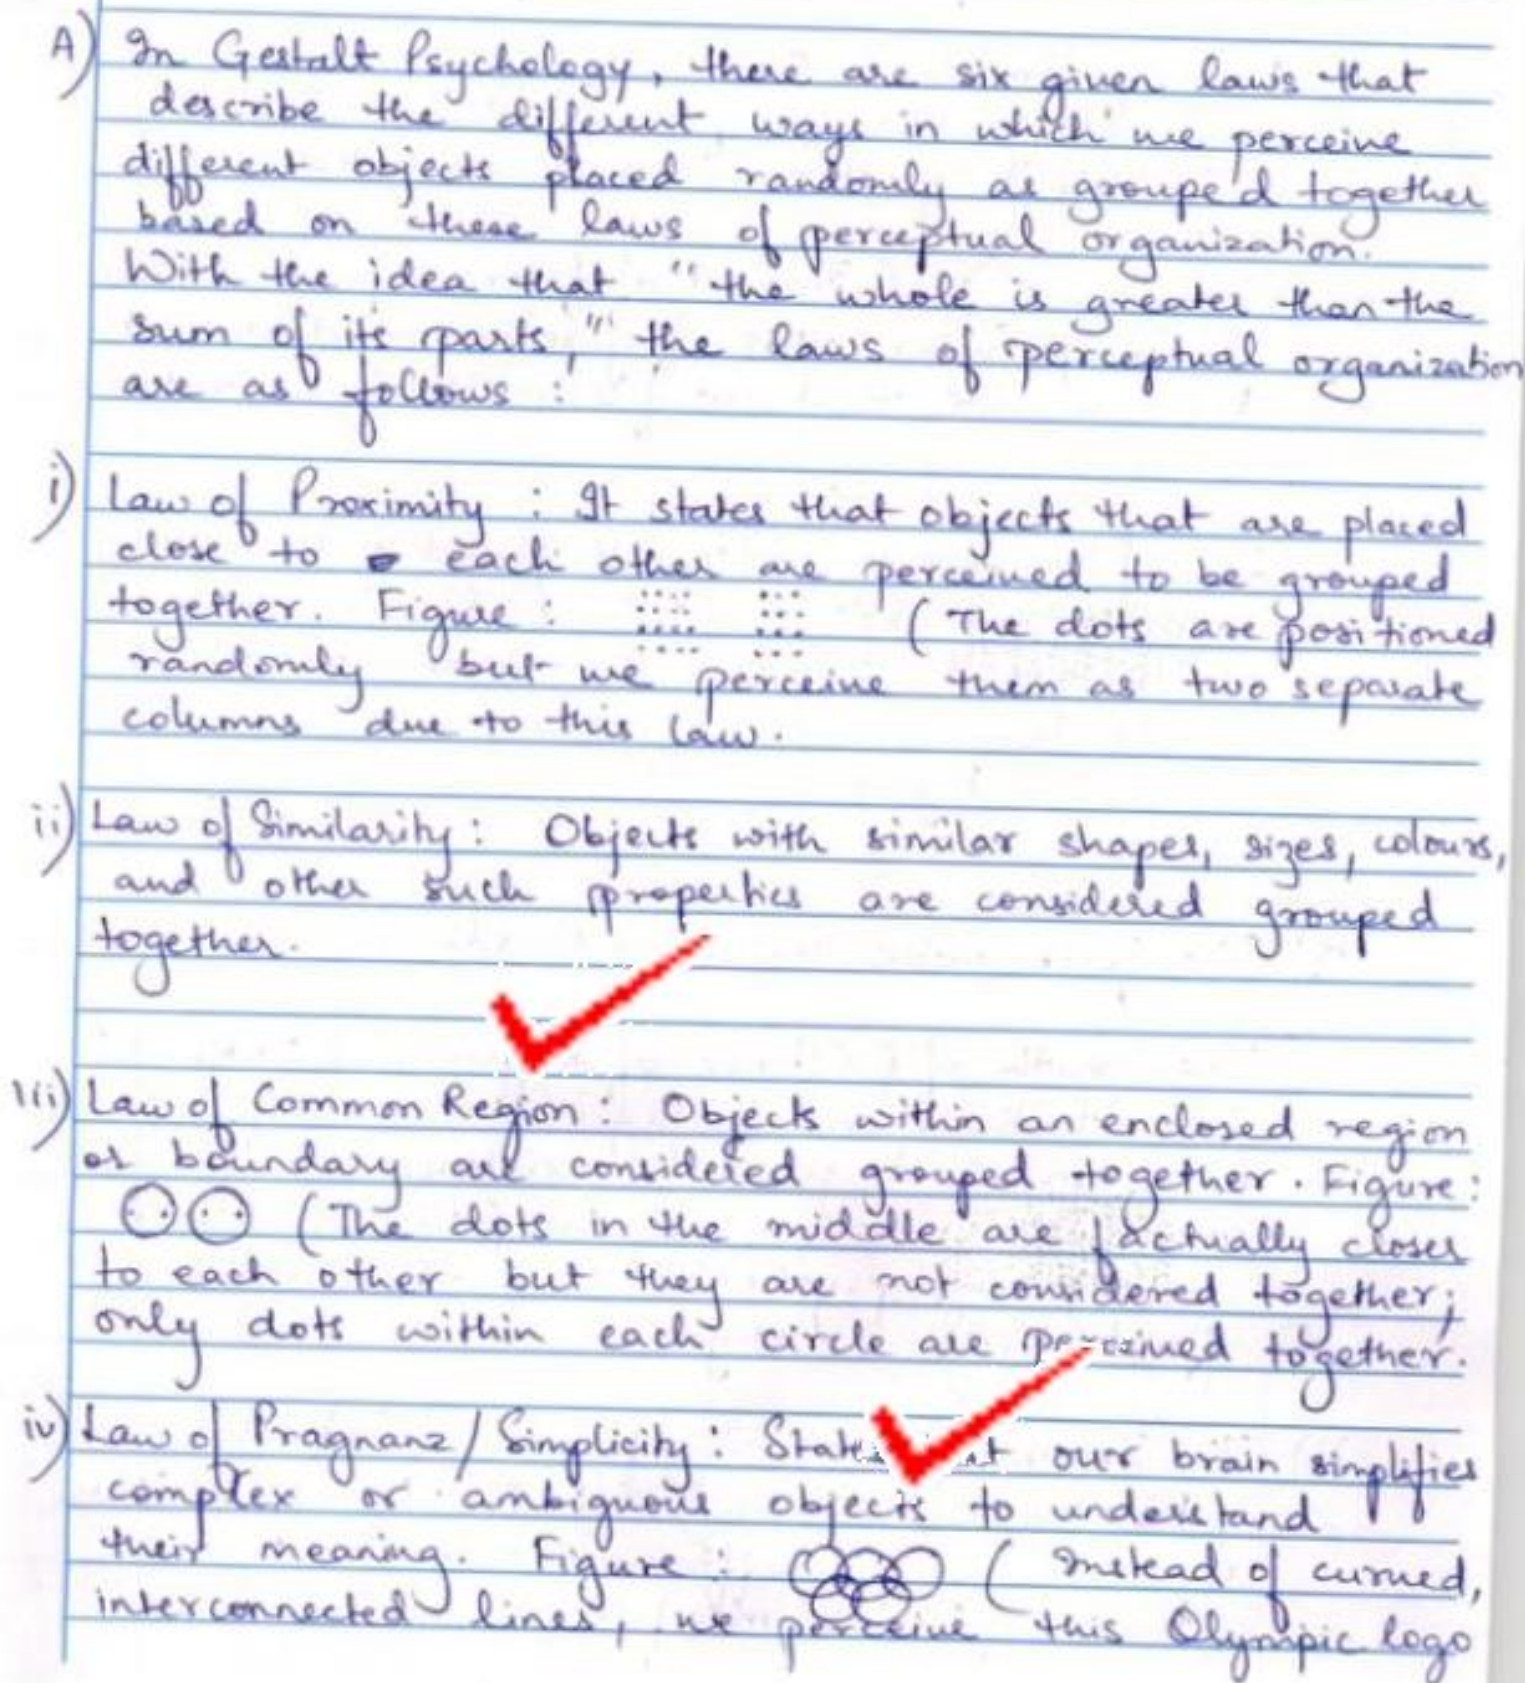 A) In Gestalt Psychology, there are six given laws that
describe the different ways in which we perceive
different objects placed randomly as grouped together
based on these laws of perceptual organization.
With the idea that "the whole is greater than the
sum of its parts," the laws of perceptual organization
are as follows :
i) Law of Proximity : It states that objects that are placed
close to each other are perceived to be grouped
together. Figure : (The dots are positioned
randomly but we perceive them as two separate
columns due to this law.
ii) Law of Similarity : Objects with similar shapes, sizes, colours,
and other such properties are considered grouped
together.
iii) Law of Common Region : Objects within an enclosed region
or boundary are considered grouped together. Figure :
(The dots in the middle are factually closer
to each other but they are not considered together;
only dots within each circle are perceived together.
iv) Law of Pragnanz / Simplicity : our brain simplifies
complex or ambiguous objects to understand
their meaning. Figure : (Instead of curved,
interconnected lines, we perceive this Olympic logo